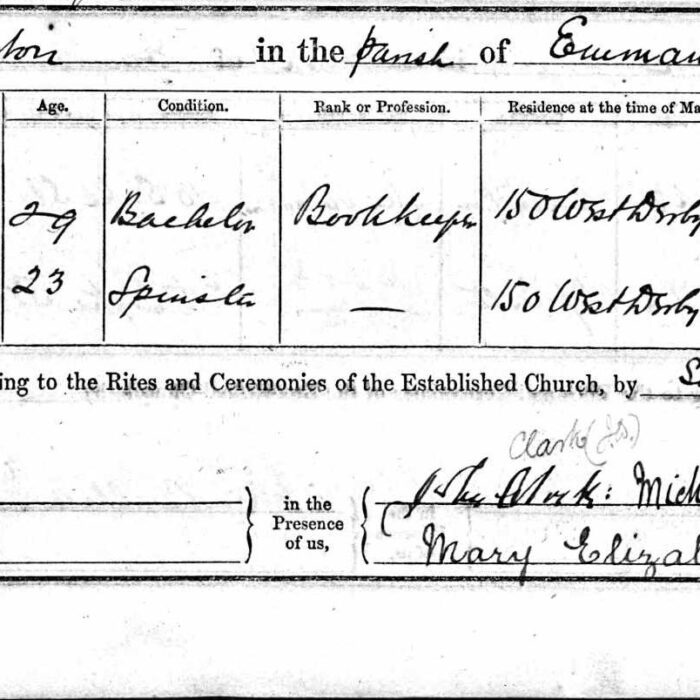 ton in the parish of Emman
Age. Condition. Rank or Profession. Residence at the time of Ma
29 Bachelor Bookkeeper 150 West Derby
23 Spinster — 150 West Derby
ing to the Rites and Ceremonies of the Established Church, by
Clark (J.S.)
in the
John Clark: Mich
Presence
of us,
Mary Elizab